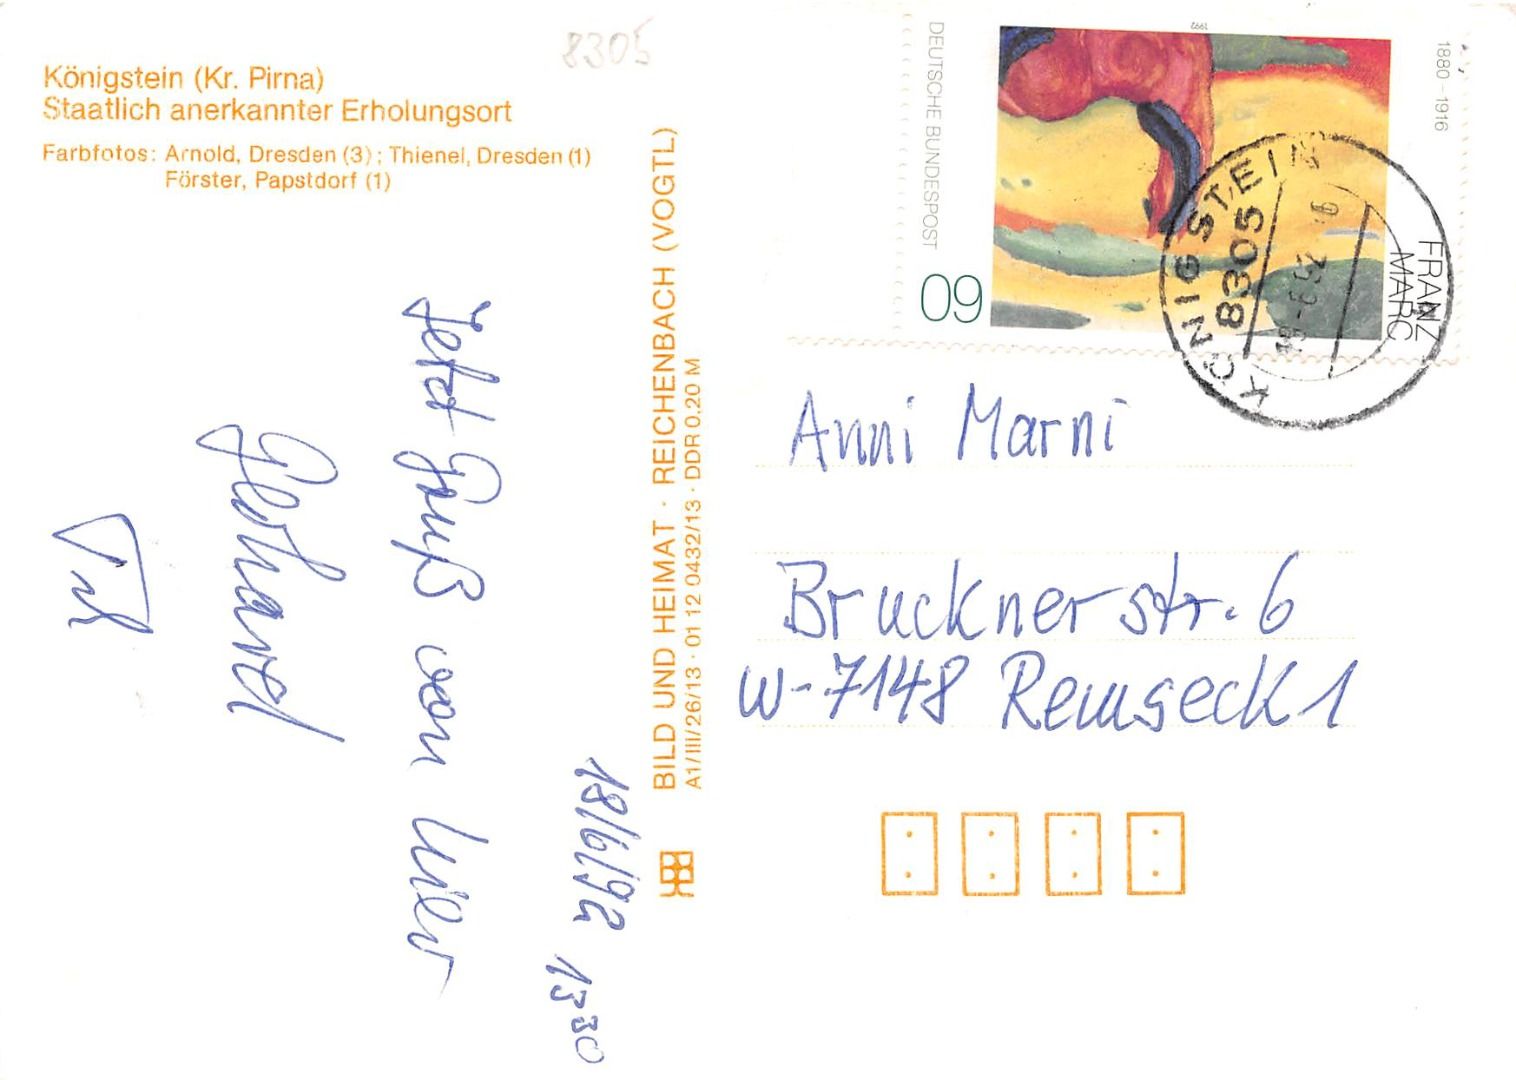 8305
Königstein (Kr. Pirna)
Staatlich anerkannter Erholungsort
Farbfotos: Arnold, Dresden (3); Thienel, Dresden (1)
Förster, Papstdorf (1)
18/6/92 1330
Gruß von hier
Gerhard
BILD UND HEIMAT · REICHENBACH (VOGTL)
A1/III/26/13 · 01 12 0432/13 · DDR 0,20 M
DEUTSCHE BUNDESPOST
60
1992
1880-1916
FRANZ
MARC
KÖNIGSTEIN
8305
Anni Marni
Brucknerstr. 6
W-7148 Remseck 1